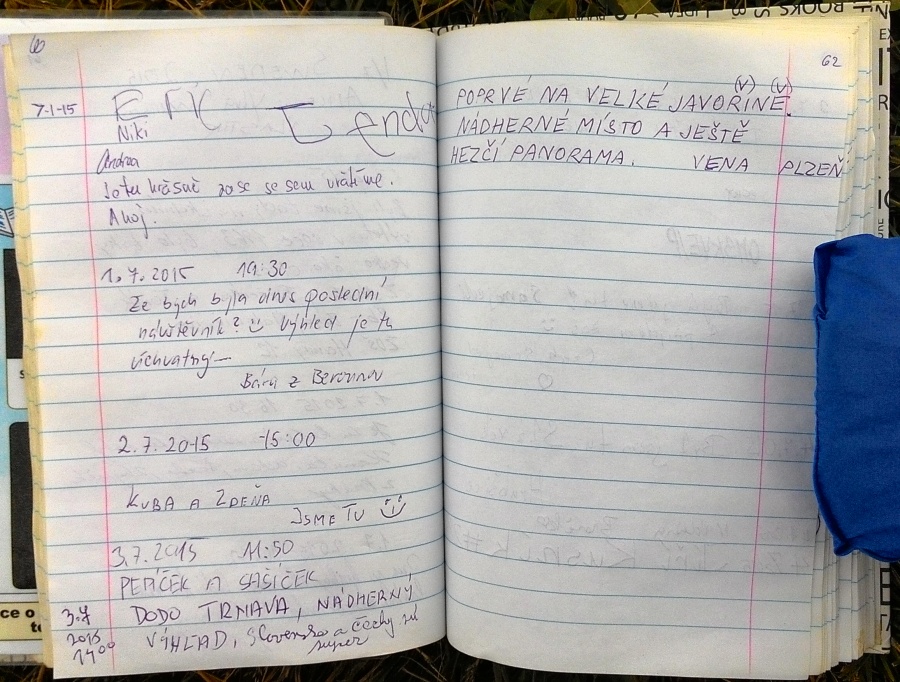 60
7-1-15
ERIK
Niki
Andrea
Je tu krásně zase se sem vrátíme.
Ahoj.
1.7.2015 19:30
Že bych byla dnes poslední
návštěvník? Výhled je tu
úchvatný
Bára z Berouna
2.7.2015 15:00
KUBA A ZDEŇA
JSME TU
3.7.2015 11:50
PEPÍČEK A SAŠÍČEK
3.7 2015 14⁰⁰
DODO TRNAVA, NÁDHERNÝ
VÝHĽAD, Slovensko a Čechy sú
super
62
(V) (V)
POPRVÉ NA VELKÉ JAVORINE.
NÁDHERNÉ MÍSTO A JEŠTĚ
HEZČÍ PANORAMA. VENA PLZEŇ
BOOKS